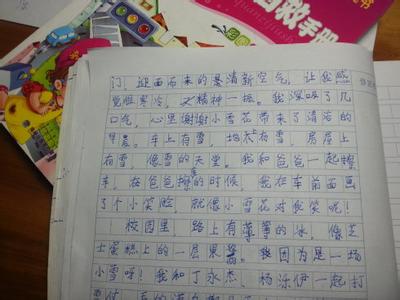 自救手册
门！迎面而来的是清新空气，让我感
觉胜寒冷，又精神一振。我深吸了几
口气，心里谢谢小雪花带来了清洁的
早晨。车上有雪，地木有雪，房屋上
有雪，像雪的天堂。我和爸爸一起擦
车，在爸爸擦的时候，我在车前面画
了个小笑脸，就像小雪花对我笑呢！
校园里，路上有薄薄的冰，像芝
士蛋糕上的一层果酱。我因为是一场
小雪呀！我和丁永杰，杨泺伊一起打